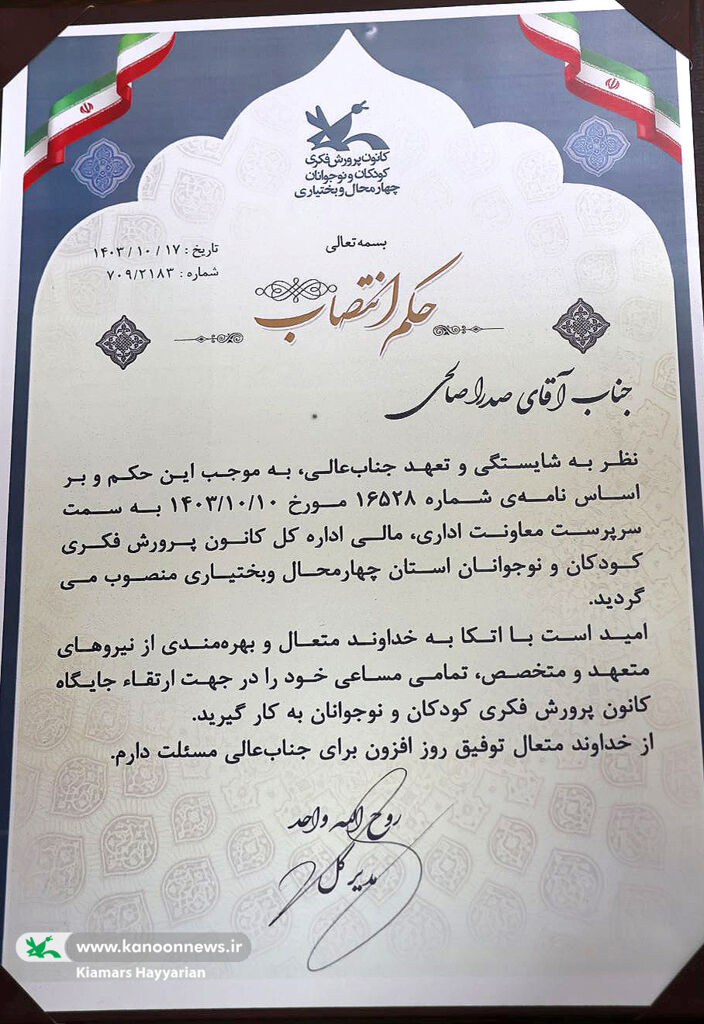 کانون پرورش فکری
کودکان و نوجوانان
چهارمحال و بختیاری
بسمه تعالی
تاریخ : ۱۷ / ۱۰ / ۱۴۰۳
شماره : ۷۰۹/۲۱۸۳
حکم انتصاب
جناب آقای صدرا صالحی
نظر به شایستگی و تعهد جناب‌عالی، به موجب این حکم و بر
اساس نامه‌ی شماره ۱۶۵۲۸ مورخ ۱۴۰۳/۱۰/۱۰ به سمت
سرپرست معاونت اداری، مالی اداره کل کانون پرورش فکری
کودکان و نوجوانان استان چهارمحال وبختیاری منصوب می
گردید.
امید است با اتکا به خداوند متعال و بهره‌مندی از نیروهای
متعهد و متخصص، تمامی مساعی خود را در جهت ارتقاء جایگاه
کانون پرورش فکری کودکان و نوجوانان به کار گیرید.
از خداوند متعال توفیق روز افزون برای جناب‌عالی مسئلت دارم.
روح الله واحد
مدیر کل
www.kanoonnews.ir
Kiamars Hayyarian